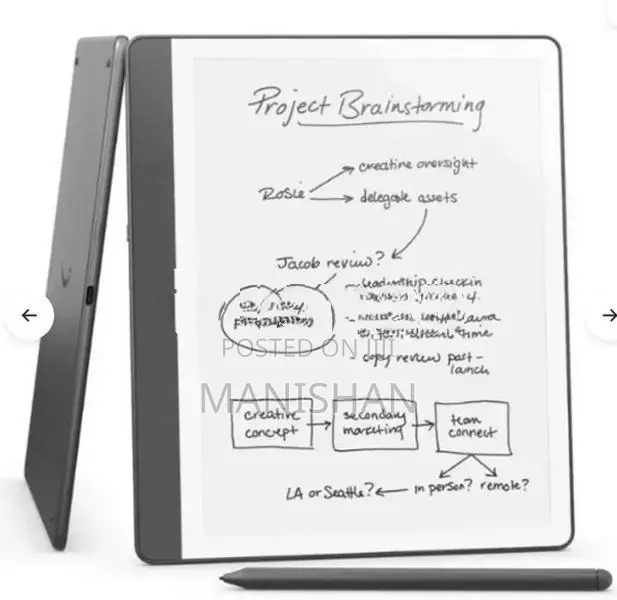 Project Brainstorming
creative oversight
Rosie
delegate assets
Jacob review?
- leadership checkin
time
POSTED ON JIJI
- copy review post-
launch
MANISHAN
creative
concept
secondary
marketing
team
connect
LA or Seattle?
in person?
remote?